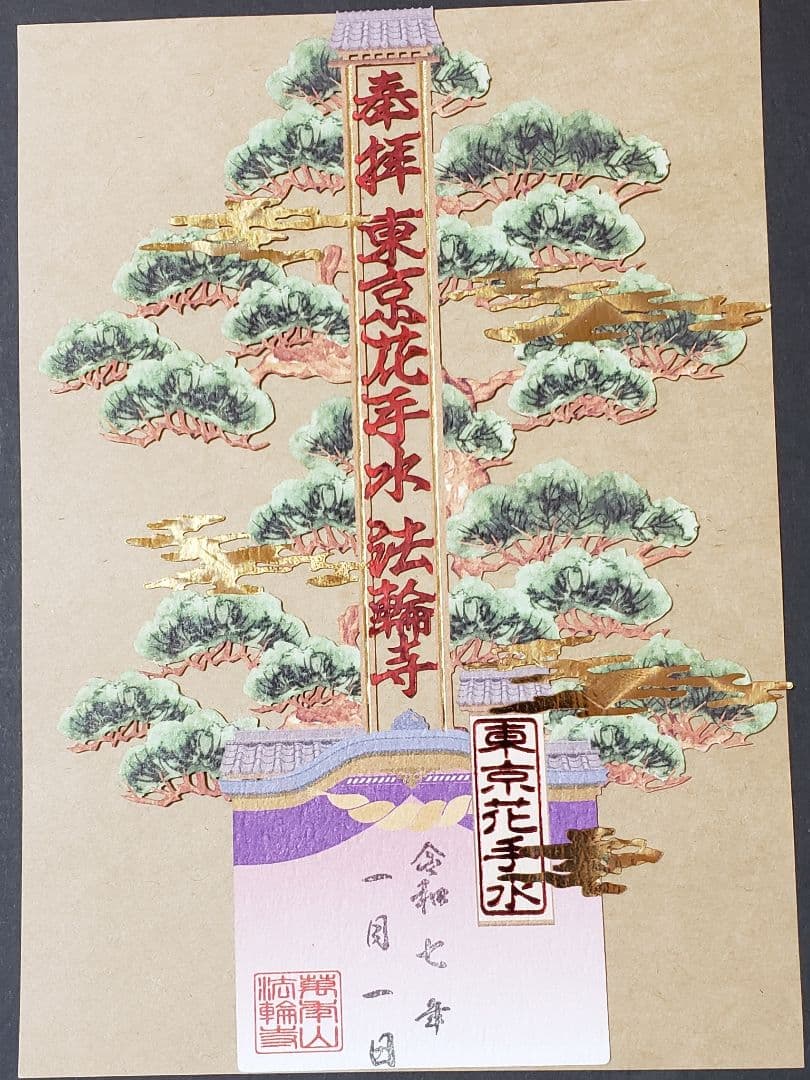 奉拝 東京花手水 法輪寺
東京花手水
令和七年
一月一日
萬年山
法輪寺